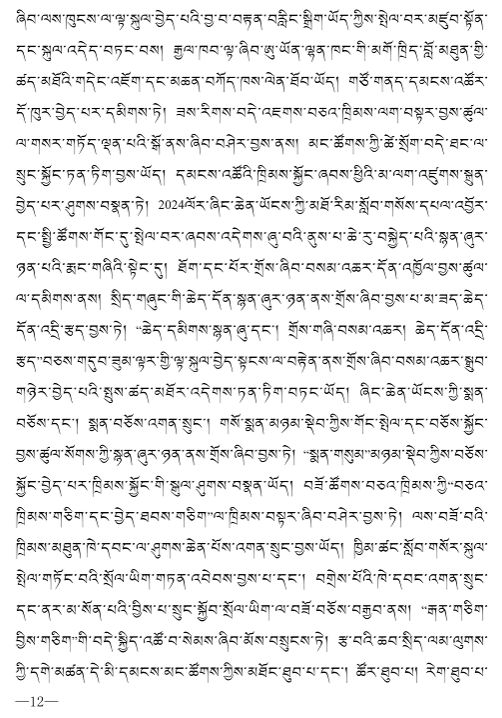 ཞིབ་ལས་ཁུངས་ལ་ལྟ་སྐུལ་བྱེད་པའི་བྱ་བ་བརྟན་བརླིང་སྒྲིག་ཡོད་ཀྱིས་སྤེལ་བར་མཛུབ་སྟོན་
དང་སྐུལ་འདེད་བཏང་བས། རྒྱལ་ཁབ་ལྟ་ཞིབ་ཨུ་ཡོན་ལྷན་ཁང་གི་མགོ་ཁྲིད་བློ་མཐུན་གྱི་
ཚད་མཐོའི་གདེང་འཇོག་དང་མཆན་བཀོད་ཁས་ལེན་ཐོབ་ཡོད། གཙོ་གནད་དམངས་འཚོར་
དོ་ཁུར་བྱེད་པར་དམིགས་ཏེ། ཟས་རིགས་བདེ་འཇགས་བཅའ་ཁྲིམས་ལག་བསྟར་བྱས་ཚུལ་
ལ་གསར་གཏོད་ལྡན་པའི་སྒོ་ནས་ཞིབ་བཤེར་བྱས་ནས། མང་ཚོགས་ཀྱི་ཚེ་སྲོག་བདེ་ཐང་ལ་
སྲུང་སྐྱོང་ཏན་ཏིག་བྱས་ཡོད། དམངས་འཚོའི་ཁྲིམས་སྐྱོང་ཞབས་ཕྱིའི་མ་ལག་འཛུགས་སྐྲུན་
བྱེད་པར་ཤུགས་བསྣན་ཏེ། 2024ལོར་ཞིང་ཆེན་ཡོངས་ཀྱི་མཐོ་རིམ་སློབ་གསོས་དཔལ་འབྱོར་
དང་སྤྱི་ཚོགས་གོང་དུ་སྤེལ་བར་ཞབས་འདེགས་ཞུ་བའི་ནུས་པ་ཆེ་རུ་བསྐྱེད་པའི་སྙན་ཞུར་
ཉན་པའི་རྨང་གཞིའི་སྟེང་དུ། ཐོག་དང་པོར་གྲོས་ཞིབ་བསམ་འཆར་དོན་འཁྱོལ་བྱས་ཚུལ་
ལ་དམིགས་ནས། སྲིད་གཞུང་གི་ཆེད་དོན་སྙན་ཞུར་ཉན་ནས་གྲོས་ཞིབ་བྱས་པ་མ་ཟད་ཆེད་
དོན་འདྲི་རྩད་བྱས་ཏེ། “ཆེད་དམིགས་སྙན་ཞུ་དང་། གྲོས་གཞི་བསམ་འཆར། ཆེད་དོན་འདྲི་
རྩད”བཅས་གདུབ་ཟུམ་ལྟར་གྱི་ལྟ་སྐུལ་བྱེད་སྟངས་ལ་བརྟེན་ནས་གྲོས་ཞིབ་བསམ་འཆར་སྒྲུབ་
གཉེར་བྱེད་པའི་སྤུས་ཚད་མཐོར་འདེགས་ཏན་ཏིག་བཏང་ཡོད། ཞིང་ཆེན་ཡོངས་ཀྱི་སྨན་
བཅོས་དང་། སྨན་བཅོས་འགན་སྲུང་། གསོ་སྨན་མཉམ་སྡེབ་ཀྱིས་གོང་སྤེལ་དང་བཅོས་སྐྱོང་
བྱས་ཚུལ་སོགས་ཀྱི་སྙན་ཞུར་ཉན་ནས་གྲོས་ཞིབ་བྱས་ཏེ། “སྨན་གསུམ”མཉམ་སྡེབ་ཀྱིས་བཅོས་
སྐྱོང་བྱེད་པར་ཁྲིམས་སྐྱོང་གི་སྒུལ་ཤུགས་བསྣན་ཡོད། བཟོ་ཚོགས་བཅའ་ཁྲིམས་ཀྱི“བཅའ་
ཁྲིམས་གཅིག་དང་བྱེད་ཐབས་གཅིག”ལ་ཁྲིམས་བསྟར་ཞིབ་བཤེར་བྱས་ཏེ། ལས་བཟོ་བའི་
ཁྲིམས་མཐུན་ཁེ་དབང་ལ་ཤུགས་ཆེན་པོས་འགན་སྲུང་བྱས་ཡོད། ཁྱིམ་ཚང་སློབ་གསོར་སྐུལ་
སྤེལ་གཏོང་བའི་སྲོལ་ཡིག་གཏན་འབེབས་བྱས་པ་དང་། བགྲེས་པོའི་ཁེ་དབང་འགན་སྲུང་
དང་ནར་མ་སོན་པའི་བྱིས་པ་སྲུང་སྐྱོབ་སྲོལ་ཡིག་ལ་བཟོ་བཅོས་བརྒྱབ་ནས། “རྒན་གཅིག་
བྱིས་གཅིག”གི་བདེ་སྐྱིད་འཚོ་བ་སེམས་ཞིབ་མོས་བསྲུངས་ཏེ། རྩ་བའི་ཆབ་སྲིད་ལམ་ལུགས་
ཀྱི་དགེ་མཚན་དེ་མི་དམངས་མང་ཚོགས་ཀྱིས་མཐོང་ཐུབ་པ་དང་། ཚོར་ཐུབ་པ། རེག་ཐུབ་པ་
—12—